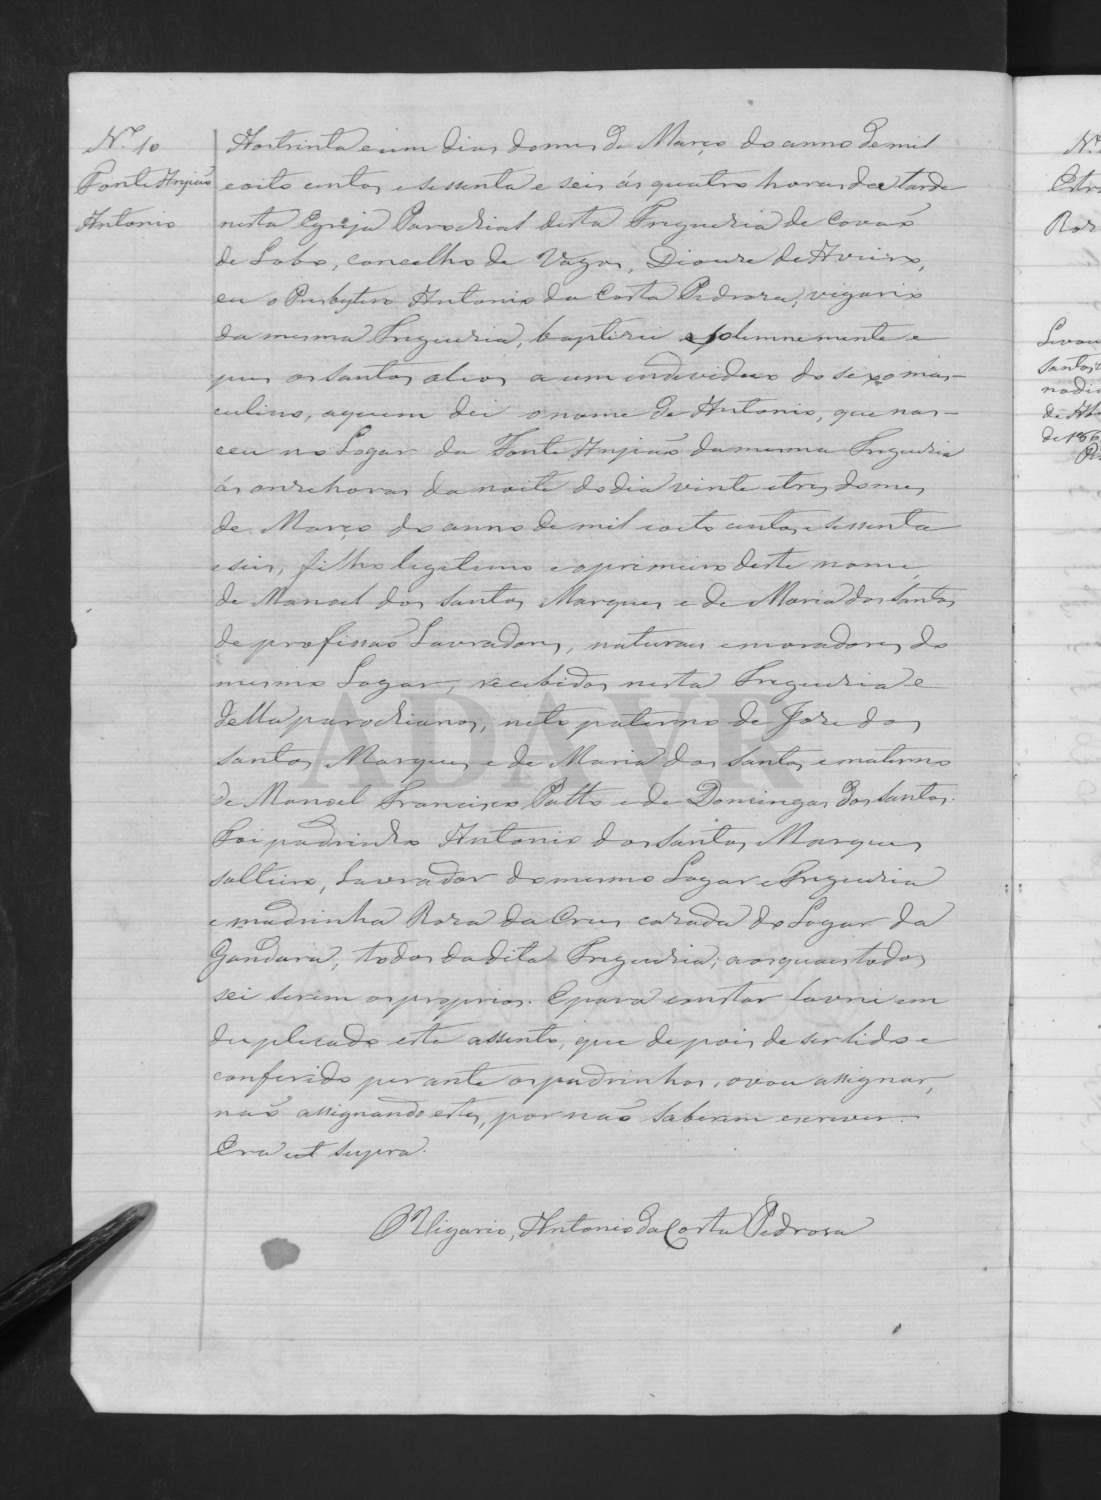 Nº 10
Fonte Anjião
Antonio
Aos trinta e um dias do mes de Março do anno de mil
e oito centos e sessenta e seis ás quatro horas da tarde
nesta Egreja Parochial desta Freguezia de Covão
de Lobo, concelho de Vagos, Diocese de Aveiro,
eu o Presbytero Antonio da Costa Pedrosa, vigario
da mesma Freguezia, baptizei solemnemente e
pus os santos oleos a um individuo do sexo mas-
culino, a quem dei o nome de Antonio, que nas-
ceu no Logar da Fonte Anjião da mesma Freguezia
ás onze horas da noite do dia vinte e tres do mes
de Março do anno de mil e oito centos e sessenta
e seis, filho legitimo e o primeiro deste nome,
de Manoel dos Santos Marques e de Maria dos Santos
de profissão Lavradores, naturaes e moradores do
mesmo Logar, recebidos nesta Freguezia e
della parochianos, neto paterno de Jose dos
Santos Marques e de Maria dos Santos e materno
de Manoel Francisco Patto e de Domingas dos Santos.
Foi padrinho Antonio dos Santos Marques
solteiro, Lavrador do mesmo Logar e Freguezia
e madrinha Rosa da Crus casada do Logar da
Gandara, todos da dita Freguezia; aos quaes todos
sei serem os proprios. E para constar lavrei em
duplicado este assento, que depois de ser lido e
conferido perante os padrinhos, o vou assignar,
não assignando estes, por não saberem escrever.
Era ut supra.
O Vigario, Antonio da Costa Pedrosa
ADAVR
Nº
Ros
Levou
Santos
no di
de
de 186